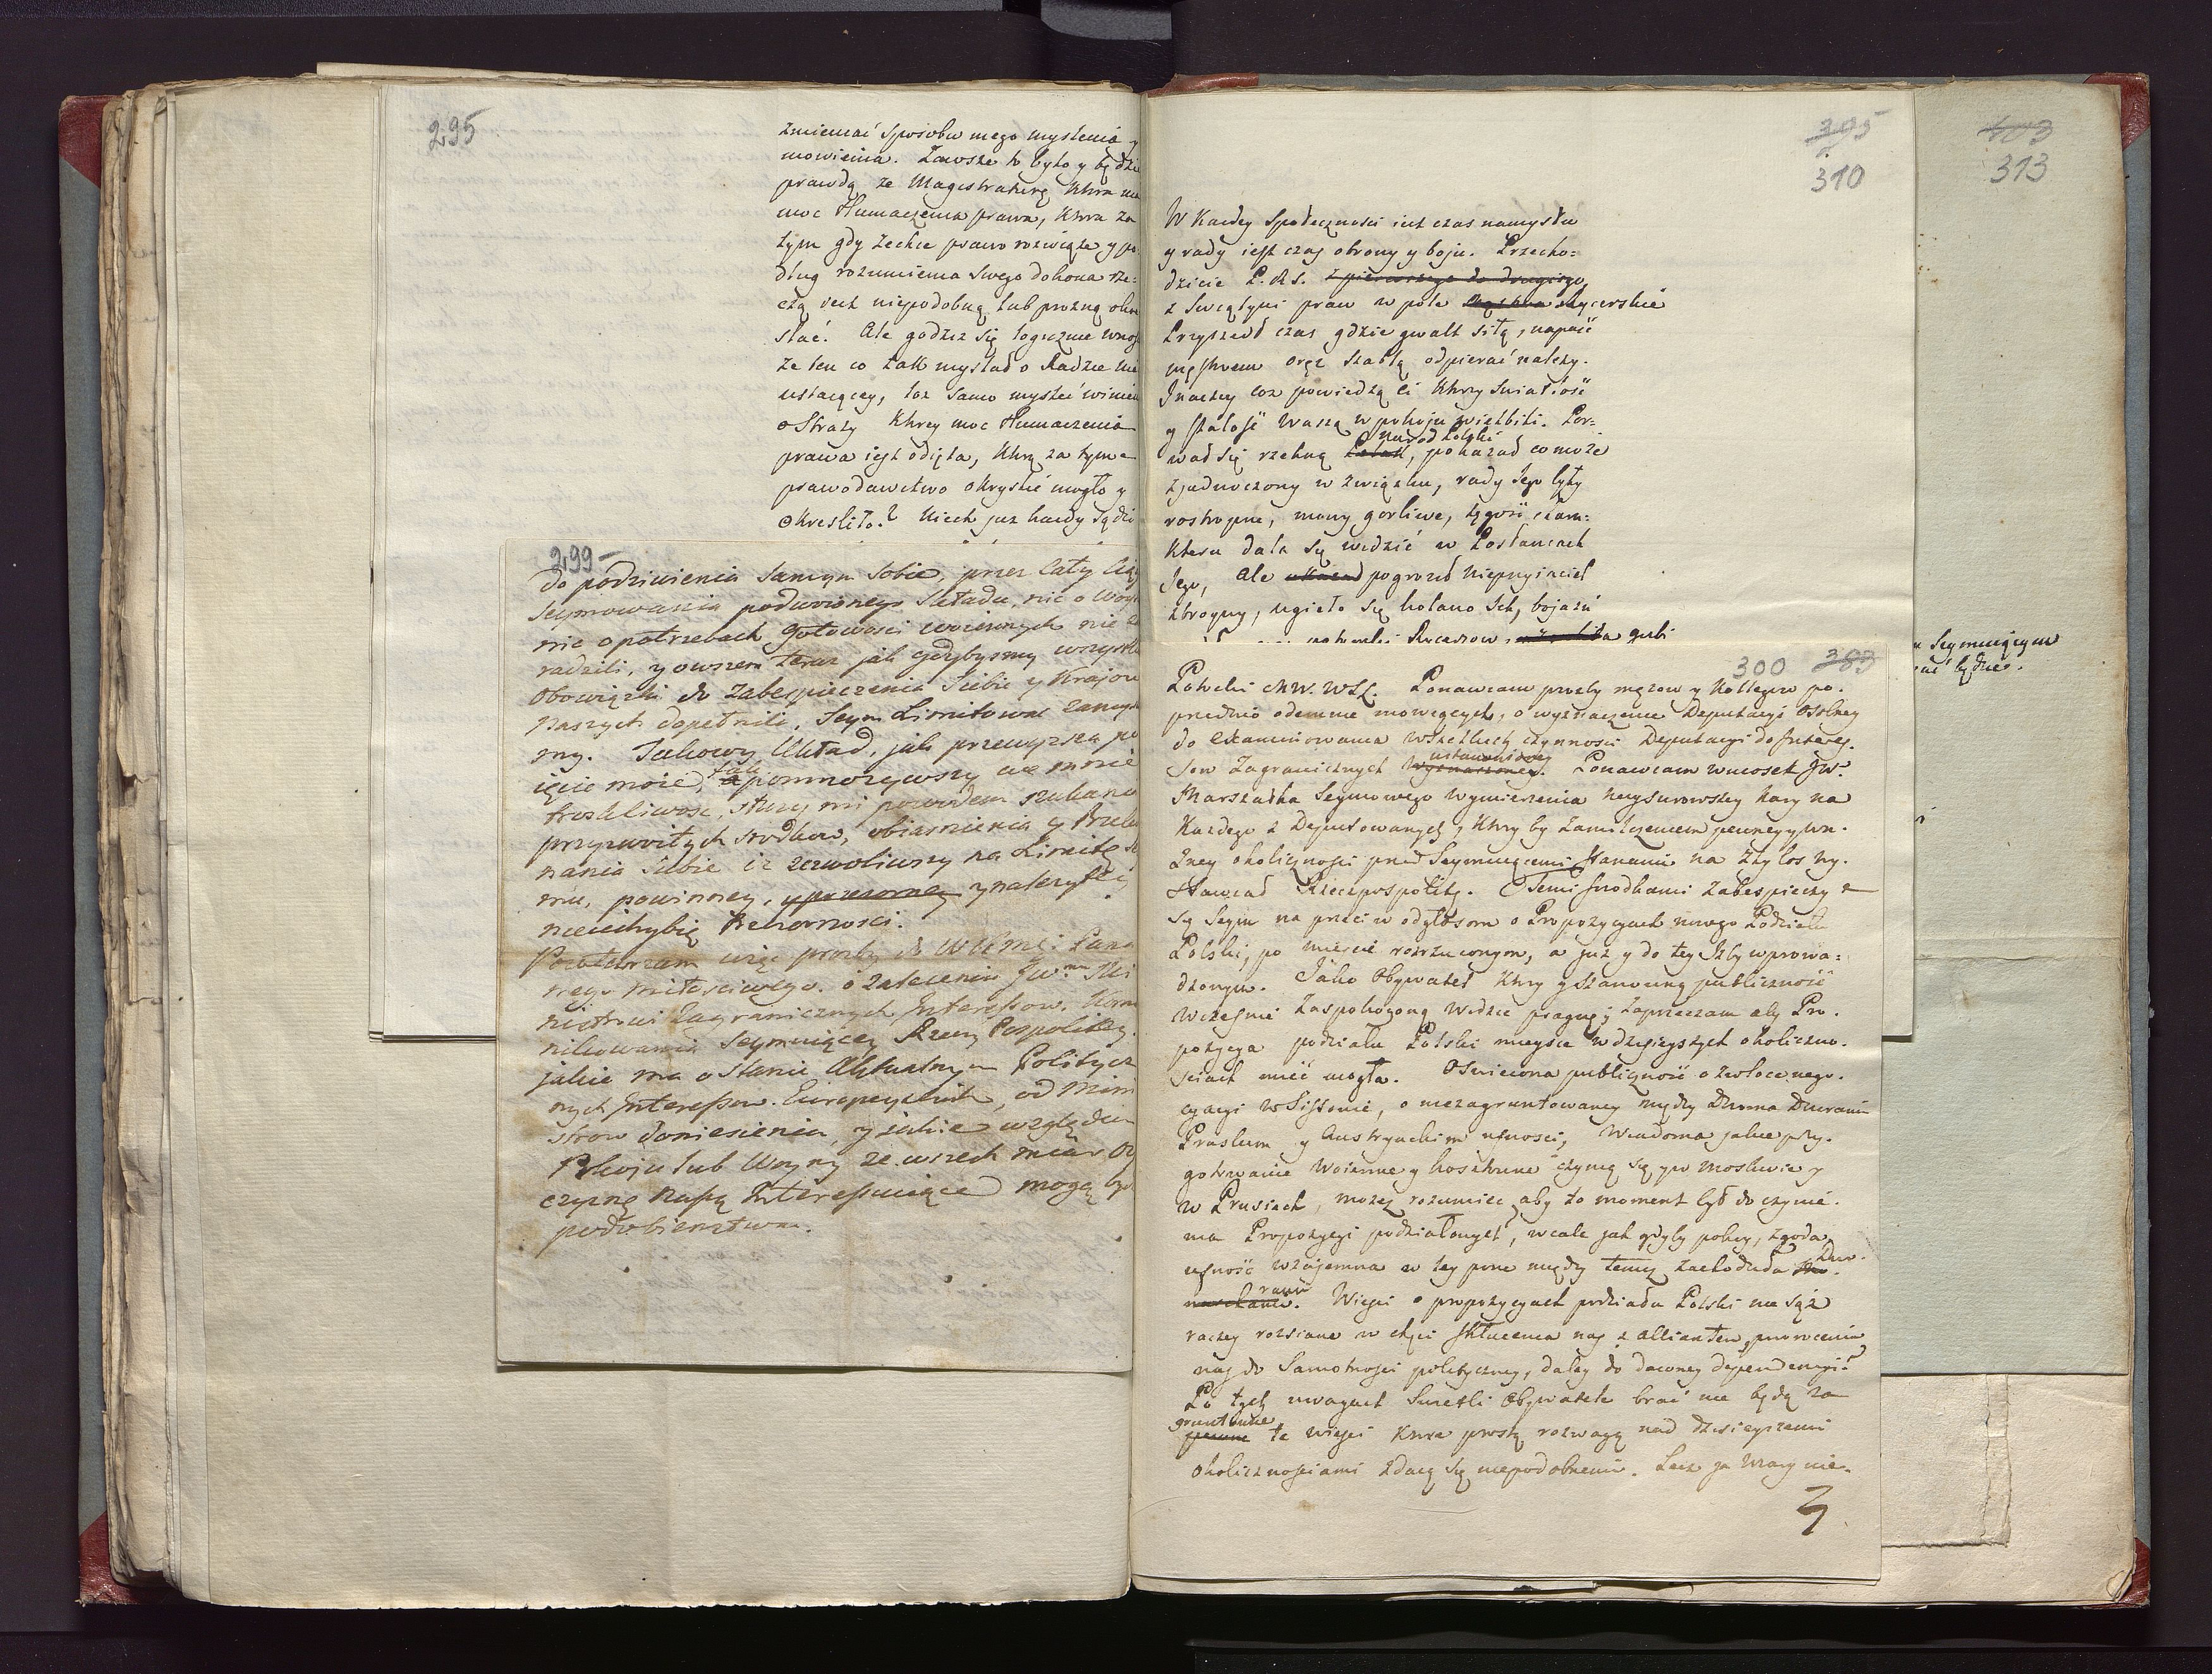 295
zmieniać sposobu mego myslenia y
mowienia. Zawsze to było y będzie
prawdą że Magistraturę ktora ma
moc tłumaczenia prawa, ktora za
tym gdy zechce prawo rozwiąże y po
dług rozumienia swego dokona rze=
czą iest niepodobną lub prożną okre
slać. Ale godzisz się logicznie wnosić
że ten co tak myslał o Radzie nie
ustaiącey, toż samo mysleć winien
o Straży ktorey moc tłumaczenia
prawa iest odięta, ktorą za tym
prawodawctwo okryslić mogło y
okreslito? Niech już każdy sądzi
299
do podziwienia samym sobie, przez cały ciąg
Seymowania podwoionego Składu, nic o Woys
nic o potrzebach gotowosci woiennych nie
radzili, y owszem teraz jak gdybysmy wszystkie
Obowiązki do zabespieczenia Siebie y Kraiow
Naszych dopełnili, Seym Limitować zamysla
my. Takowy Układ, jak przewyższa po
ięcie moie, tak pomnożywszy we mnie
troskliwosc, służy mi powodem szukania
przyzwoitych srodkow, obiasnienia y Przeko
nania Siebie iż zezwoliwszy na Limitę
mu, powinney, y przezorney y należytey
nieuchybię Wzborności.
Powtarzam więc prosby do WKMci Pana
mego miłosciwego. o zalecenie Jw. Mi
nistrowi Zagranicznych Interessow. Komu
nikowania Seymuiącey Rzeczy Pospolitey.
jakie ma o Stanie Aktualnym Politycz
nych Interessow. Europeyskich, od Mini
strow doniesienia, y jakie względem
Pokoju lub Woyny ze wszech miar Oy
czyznę naszą Interessuiące mogą być
podobienstwa.
395
310
W Każdey Społecznosci iest czas namysłu
y rady iest czas obrony y boju. Przecho=
dzicie P. R. S. z pierwszego do drugiego,
z Swiątyni praw w pole rycerskie
Przyszedł czas gdzie gwałt siłą, napaść
męstwem oręż szablą odpierać należy.
Inaczey coż powiedzą Ci ktorzy swiatłość
y stałość waszą w pokoju wielbili. Por=
wał się rzekną Polak, narod Polski pokazał co może
zjednoczony w związku, rady Jego były
rostropne, mowy gorliwe, tęgość charak=
kteru dała się widzieć w Posłancach
Jego, ale pogroził nieprzyiaciel
zbroyny, ugieło się kolano Ich, bojaźń
300 383
Potocki MW.WXL. Ponawiam prosby mężow y Kollegow po=
przednio odemnie mowiących, o wyznaczenie Deputacyi osobney
do examinowania wszelkich czynnosci Deputacyi do Interes=
sow Zagranicznych wyznaczoney ustanowioney. Ponawiam wniosek JW.
Marszałka Seymowego wymierzenia naysurowszey kary na
Każdego z Deputowanych, ktory by zamilczeniem pewney y wa=
żney okolicznosci przed Seymuiącemi Stanami na zły los wy=
stawiał Rzeczpospolitę. Temi srodkami zabespieczy
się Seym na przeciw odgłosom o Propozycyach nowego Podziału
Polski, po miescie rozrzuconym, a już y do tey Izby wprowa=
dzonym. Jako Obywatel ktory y stanowną publiczność
wczesnie zaspokojoną widzic pragnę; zaprzeczam aby Pro=
pozycya podziału Polski mieysce w dzisieyszych okoliczno=
sciach mieć mogła. Oswiecona publiczność o zwłoce nego=
cyacyi w Sistowie, o niezagruntowaney między dwoma Dworami
Pruskim y Austryackim ufnosci, wiadoma jakie przy=
gotowanie woienne y kosztowne czynią się y w Moskwie y
w Prusiech, możesz rozumiec aby to moment był do czynie=
nia Propozycyi podziałowych, wcale jak gdyby pokoy, zgoda,
ufność wzajemna w tey porze między temiż zachodziła Dwo=
rami. Wiesci o propozycyach podziału Polski nie sąż
raczey rozsiane w chęci skłucenia nas z alliantem, powrocenia
nas do samotnosci polityczney, daley do dawney dependencyi?
Po tych uwagach Swiatli Obywatele brać nie będą za
pewne gruntowne te wiesci ktore prostą rozwagą nad dzisieyszemi
okolicznosciami zdaią się niepodobnemi. Lecz ja wiary nie=
3
403
313
Seymuiącym
będzie.